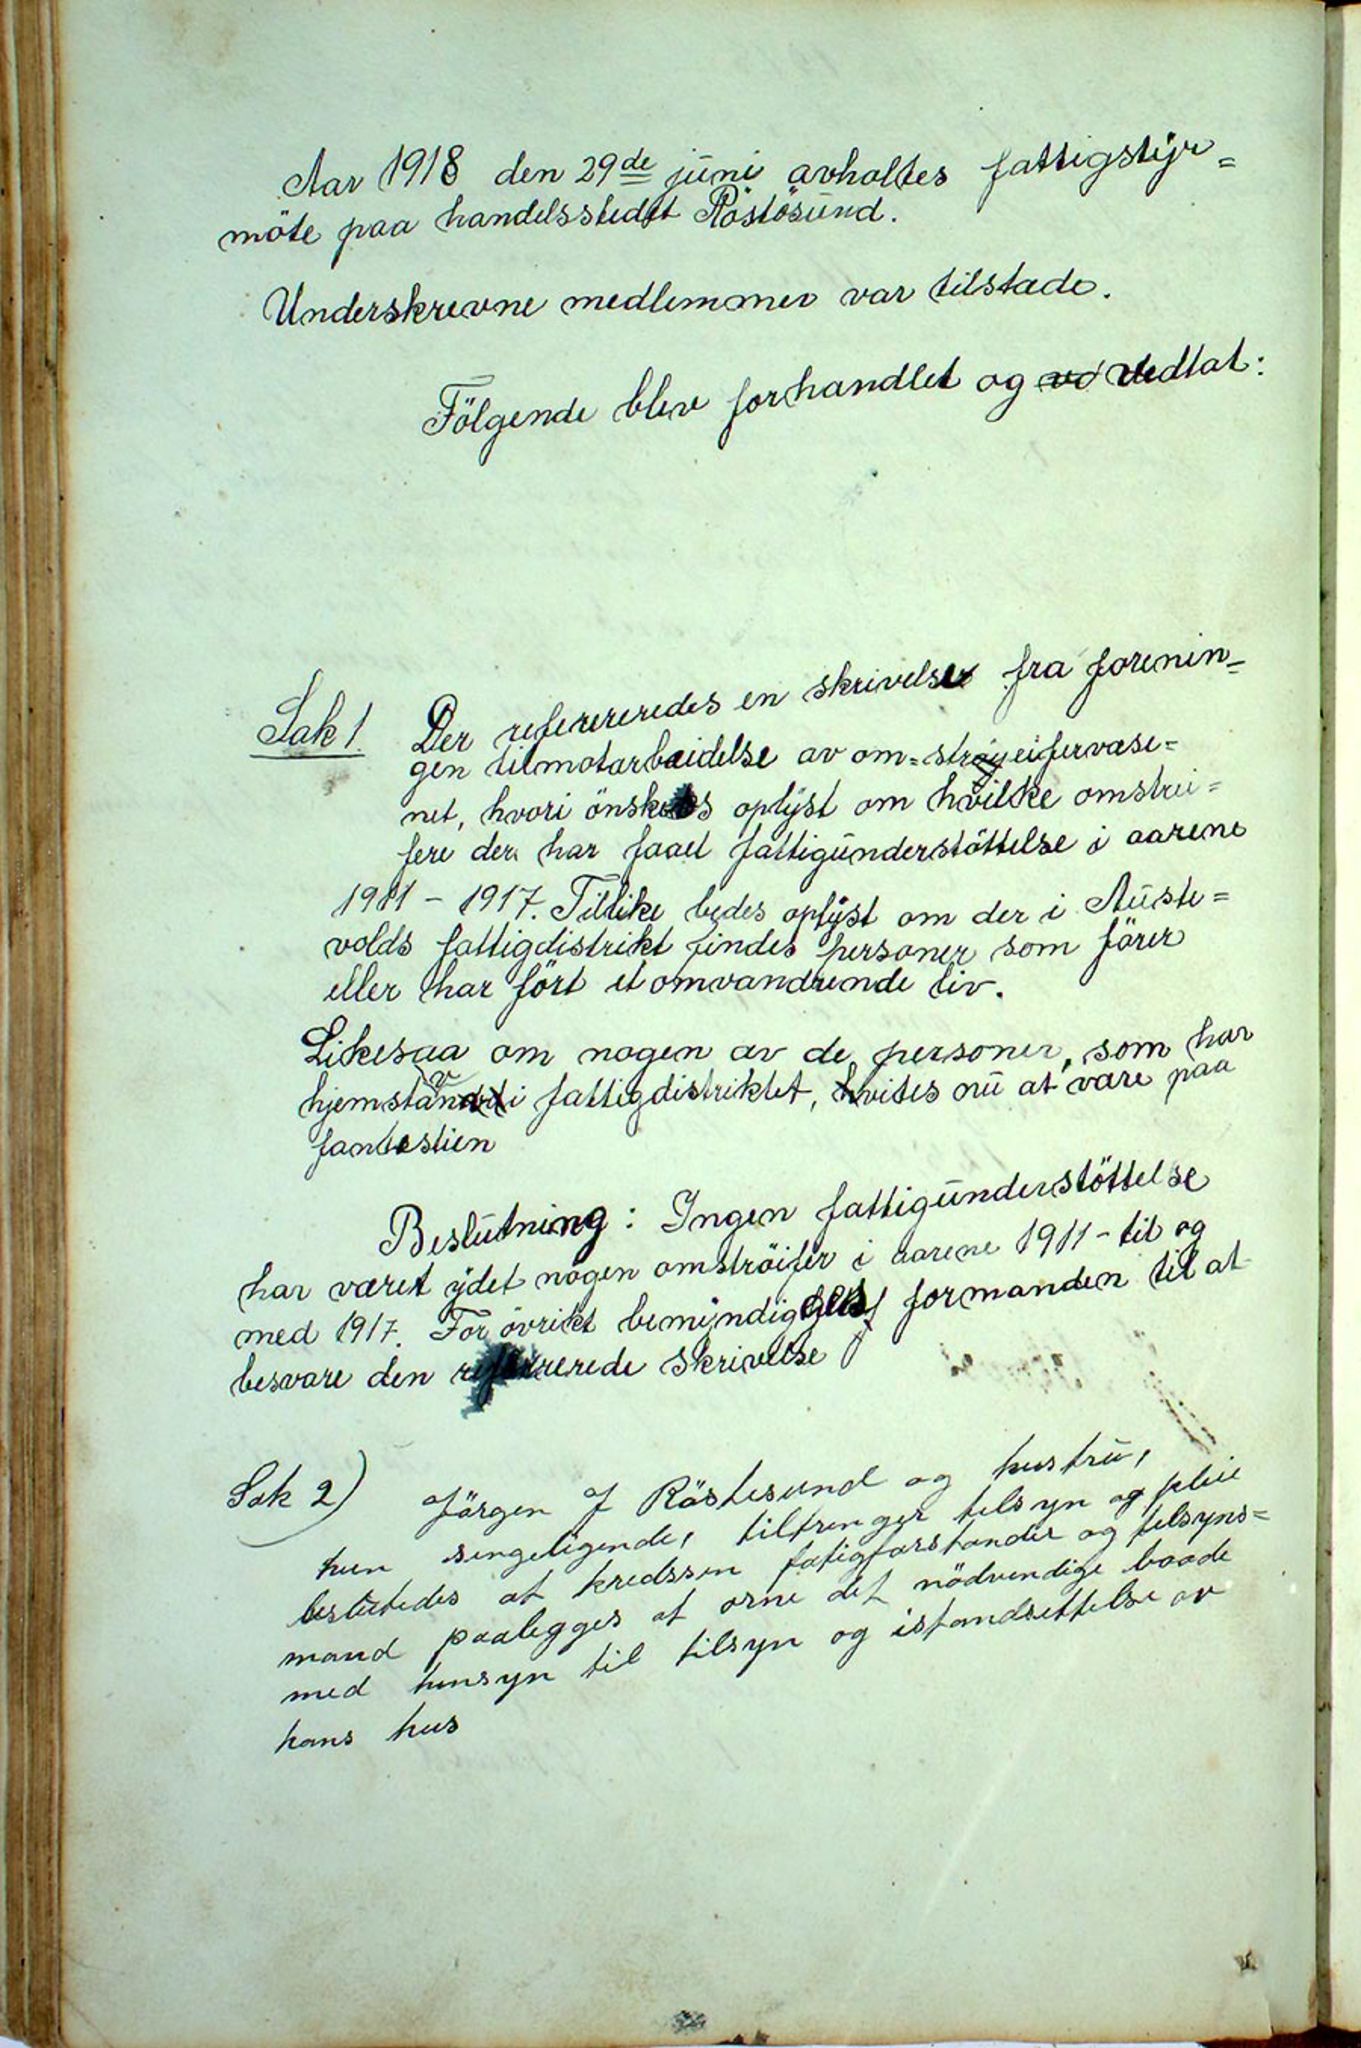 Aar 1918 den 29de juni avholtes fattigstyr=
möte paa handelsstedet Röstösund.
Underskrevne medlemmer var tilstede.
Fölgende blev forhandlet og vedtat:
Sak 1. Der refereredes en skrivelse fra forenin=
gen til motarbeidelse av om=streifervæse=
net, hvori önskes oplyst om hvilke omstrei=
fere der har faaet fattigunderstöttelse i aarene
1911 - 1917. Tillike bedes oplyst om der i Auste=
volds fattigdistrikt findes personer som förer
eller har fört et omvandrende liv.
Likesaa om nogen av de personer, som har
hjemstavn i fattigdistriktet, vites nu at være paa
fantestien
Beslutning: Ingen fattigunderstöttelse
har været ydet nogen omströifer i aarene 1911 - til og
med 1917. For övrikt bemyndiges formanden til at
besvare den refererede skrivelse
Sak 2) Jörgen J Röstesund og hustru,
hun sengeligende, tiltrenger tilsyn og pleie
beslutedes at kredssen fatigforstander og tilsyns=
mand paalegges at orne det nödvendige baade
med hensyn til tilsyn og istandsettelse av
hans hus